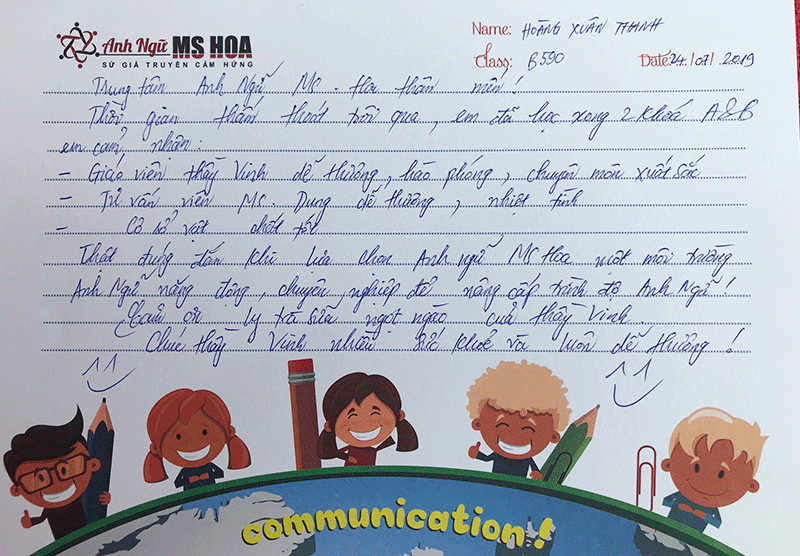 Anh Ngữ MS HOA
SỨ GIẢ TRUYỀN CẢM HỨNG
Name: HOÀNG XUÂN THANH
Class: B590 Date: 24/07/2019
Trung tâm Anh Ngữ MS. Hoa thân mến!
Thời gian thấm thoát trôi qua, em đã học xong 2 khoá A&B
em cảm nhận:
- Giáo viên thầy Vinh dễ thương, hào phóng, chuyên môn xuất sắc
- Tư vấn viên MS. Dung dễ thương, nhiệt tình
- Cơ sở vật chất tốt
Thật đúng đắn khi lựa chọn Anh ngữ MS Hoa một môi trường
Anh Ngữ năng động, chuyên nghiệp để nâng cấp trình độ Anh Ngữ!
Cảm ơn ly trà sữa ngọt ngào của thầy Vinh
Chúc thầy Vinh nhiều sức khoẻ và luôn dễ thương!
communication!